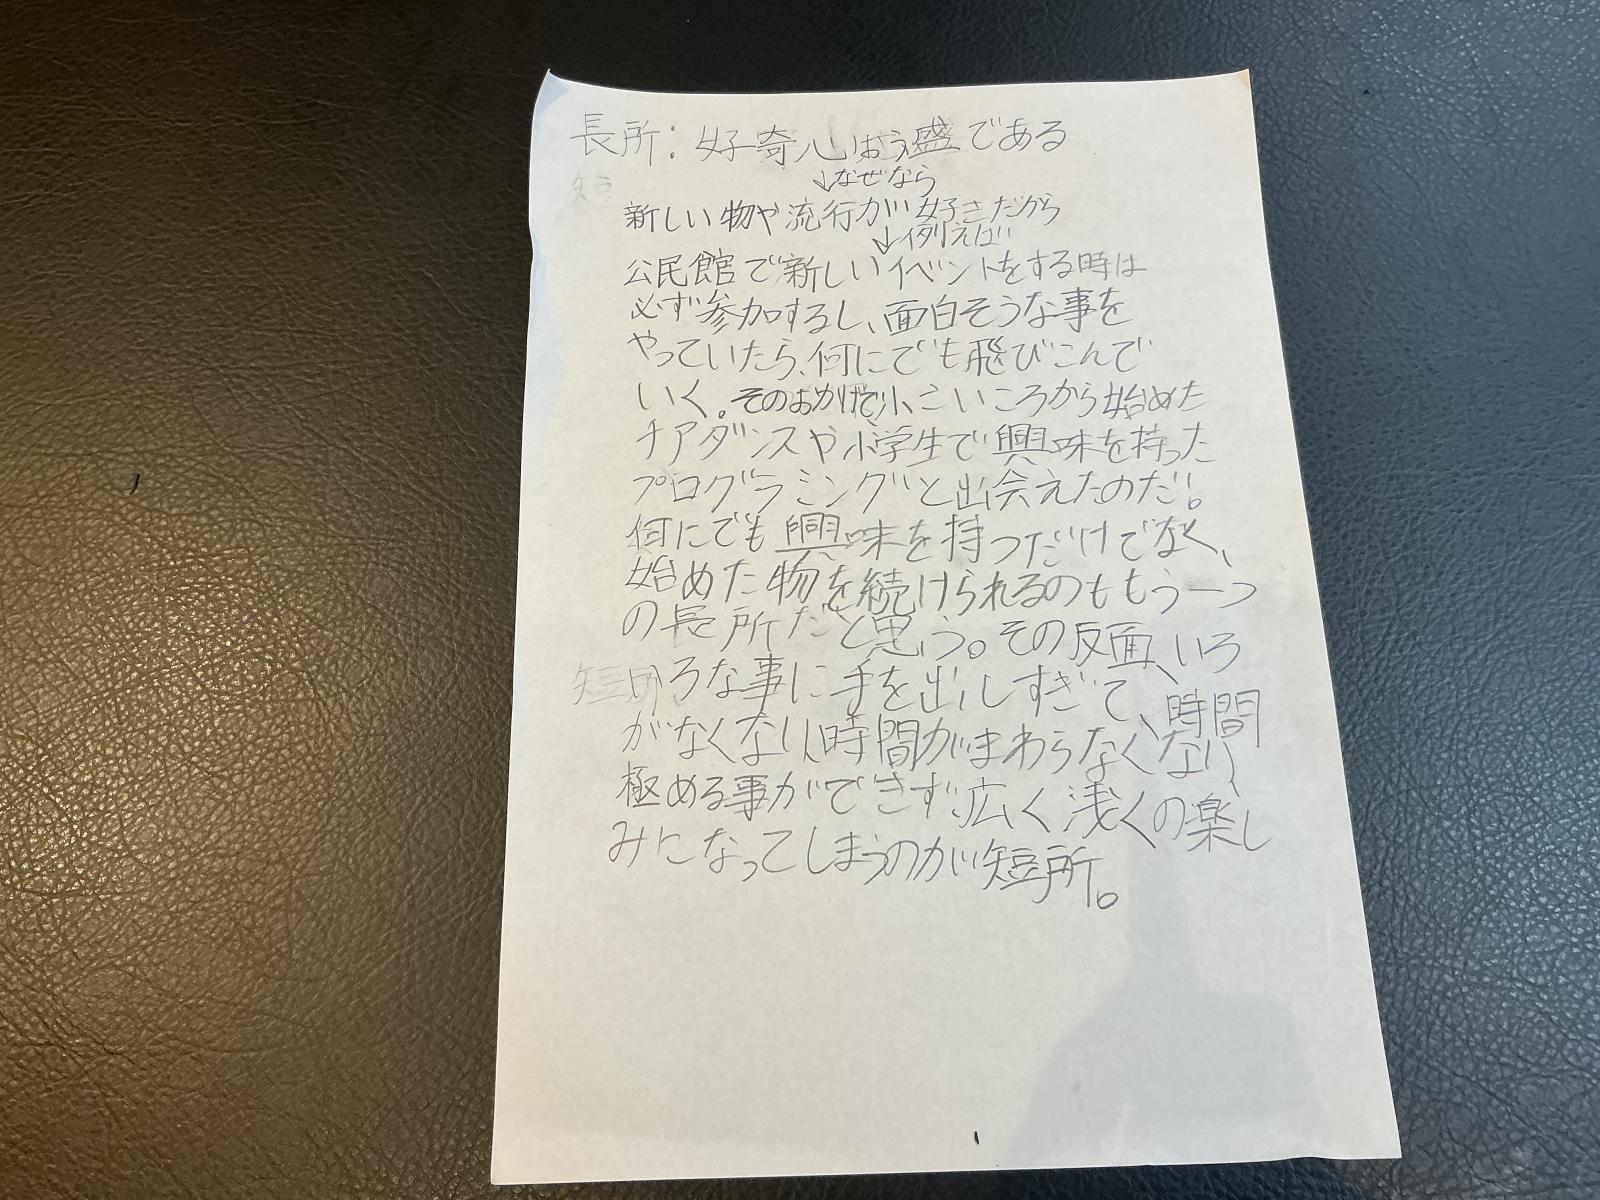 長所：好奇心おう盛である
↓なぜなら
新しい物や流行が好きだから
↓例えば
公民館で新しいイベントをする時は
必ず参加するし、面白そうな事を
やっていたら、何にでも飛びこんで
いく。そのおかげで小さいころから始めた
チアダンスや小学生で興味を持った
プログラミングと出会えたのだ。
何にでも興味を持つだけでなく、
始めた物を続けられるのももう一つ
の長所だと思う。その反面、いろ
ろな事に手を出しすぎて、時間
がなくなり、時間がまわらなくなり、
極める事ができず、広く浅くの楽し
みになってしまうのが短所。